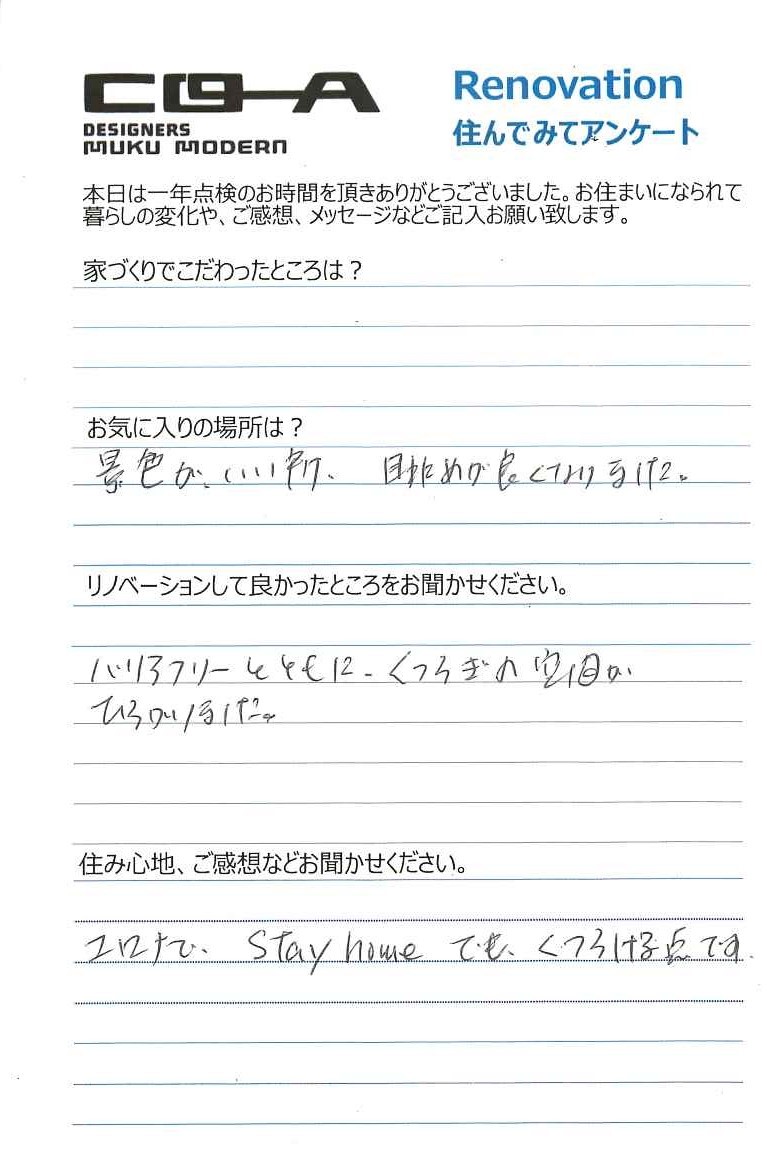 DESIGNERS
MUKU MODERN
Renovation
住んでみてアンケート
本日は一年点検のお時間を頂きありがとうございました。お住まいになられて
暮らしの変化や、ご感想、メッセージなどご記入お願い致します。
家づくりでこだわったところは？
お気に入りの場所は？
景色が、いい所、 目ざめが良くなりました。
リノベーションして良かったところをお聞かせください。
バリアフリーとともに、くつろぎの空間が
ひろがりました。
住み心地、ご感想などお聞かせください。
コロナで、Stay homeでも、くつろげる点です